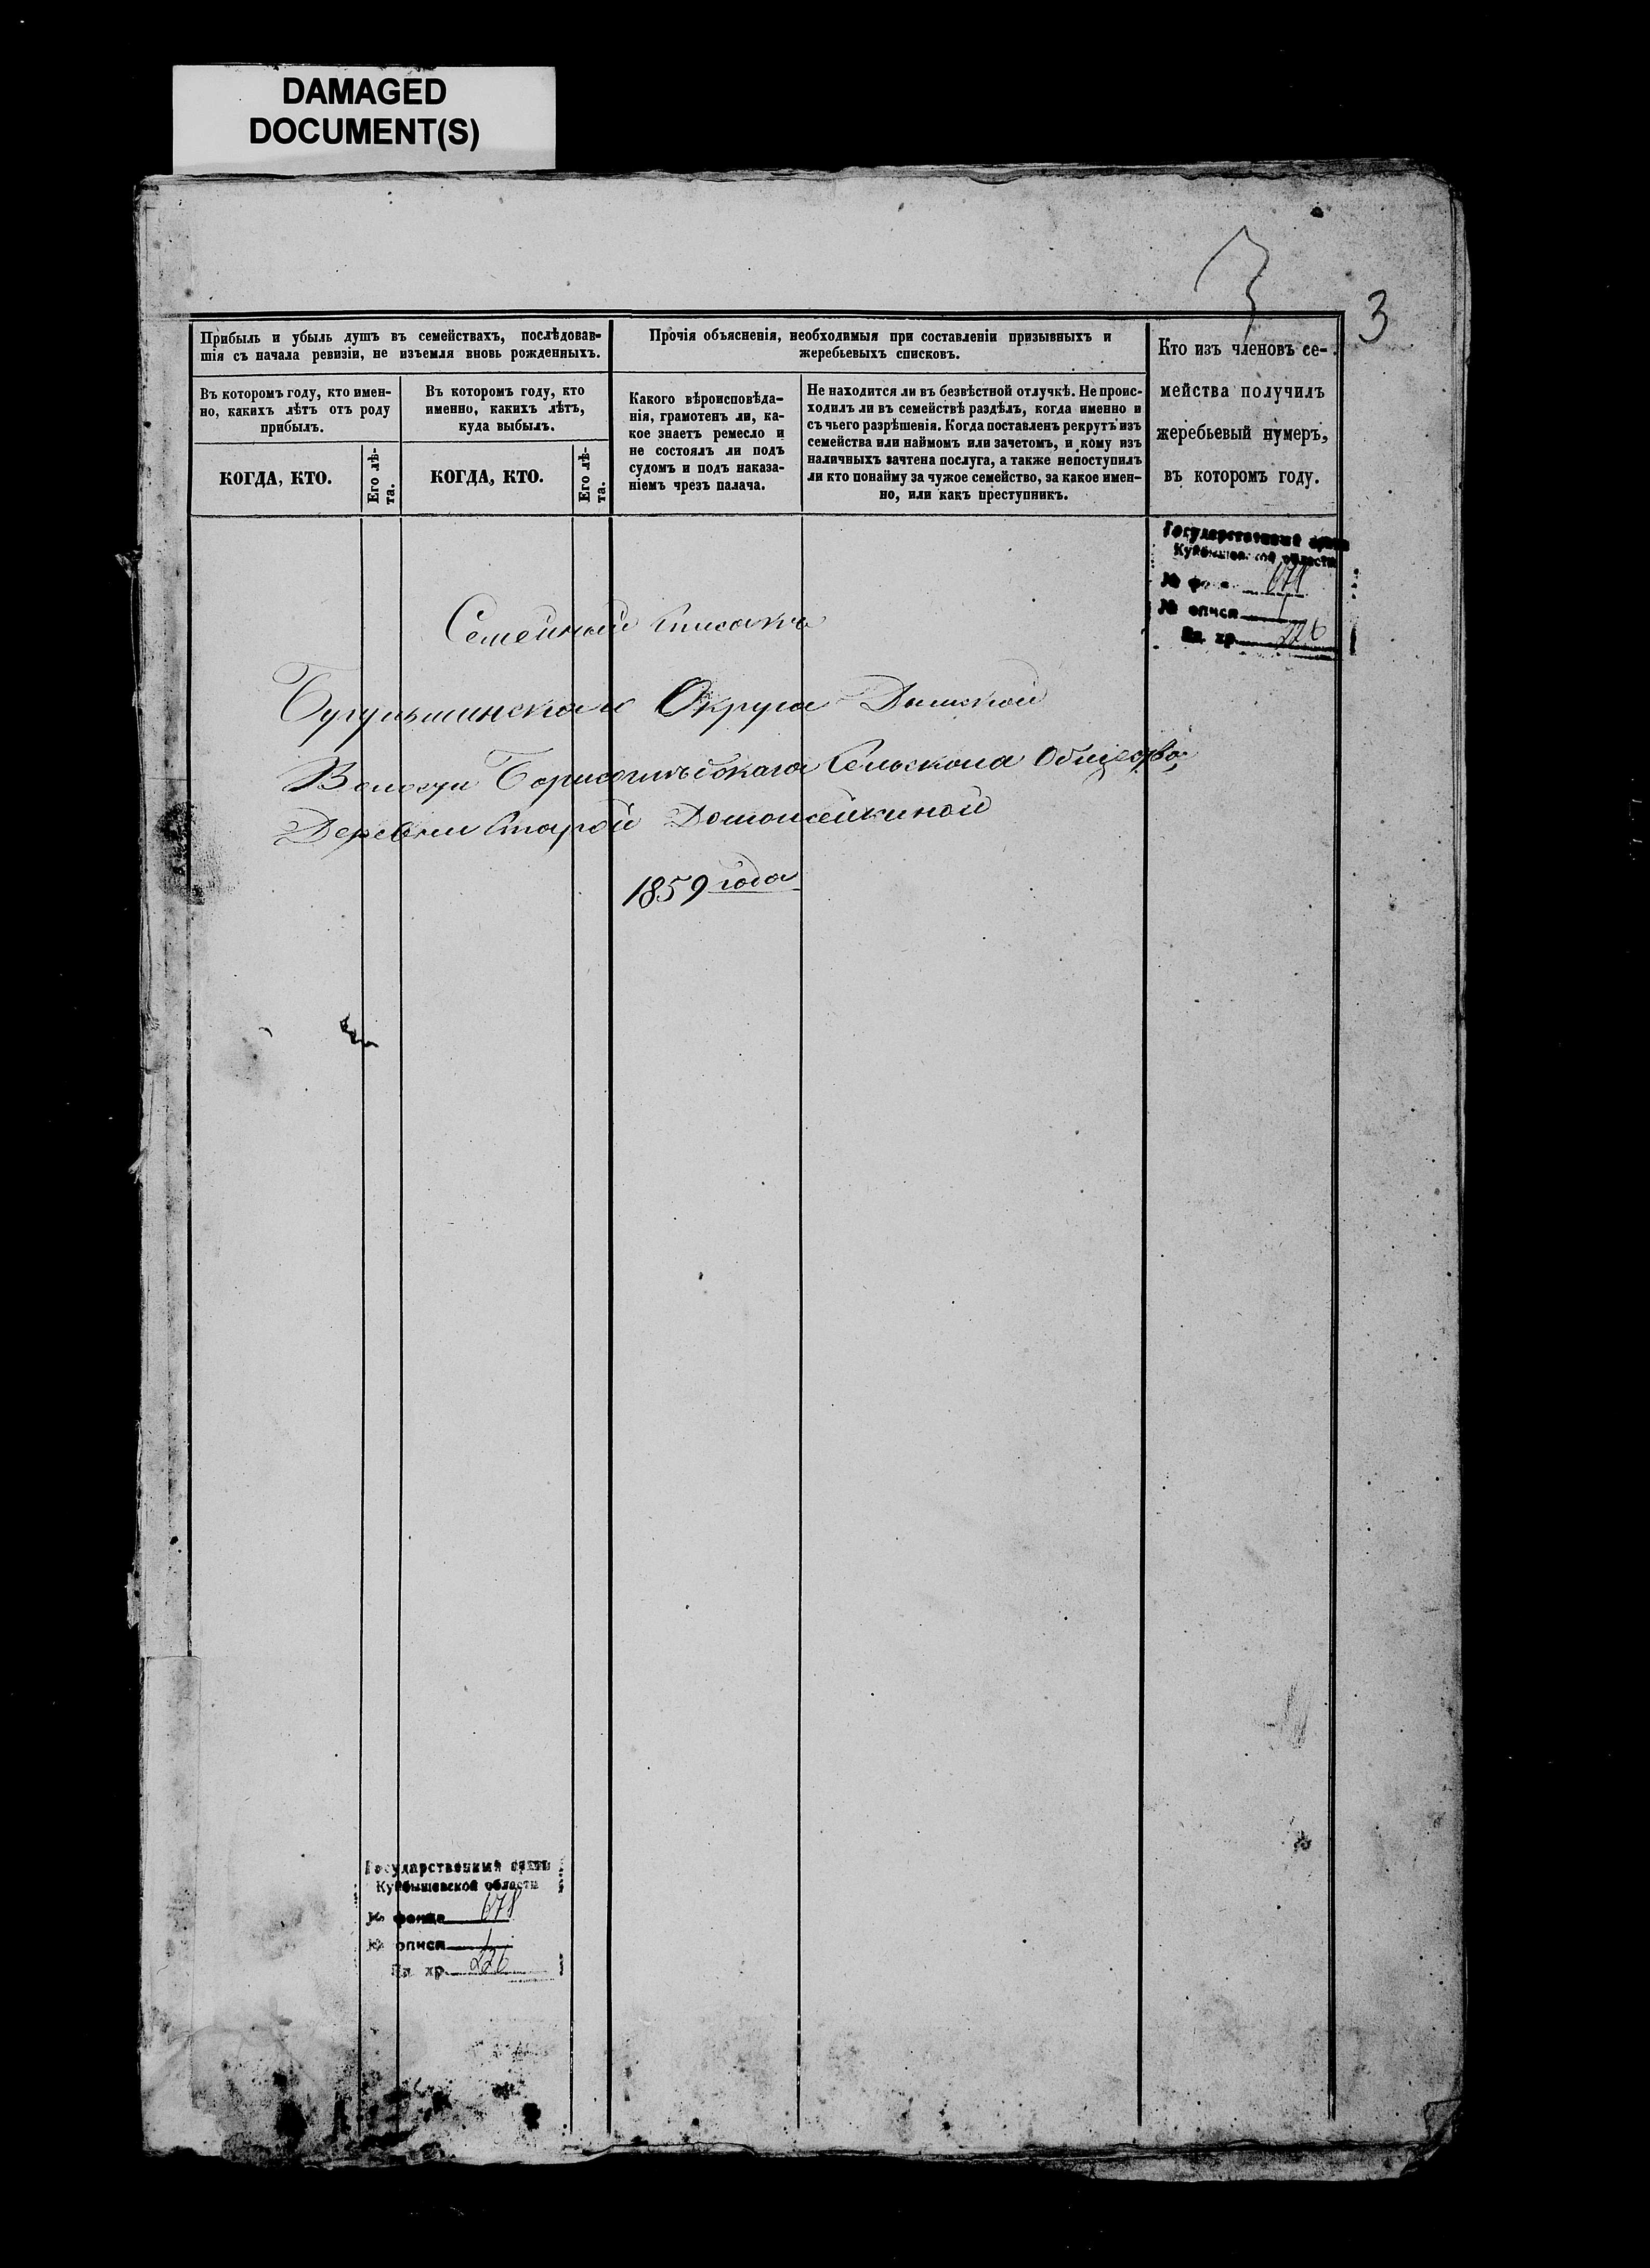 DAMAGED
DOCUMENT(S)
3
3
Прибыль и убыль душъ въ семействахъ, послѣдовав-
шія съ начала ревизіи, не изъемля вновь рожденныхъ.
Въ которомъ году, кто имен-
но, какихъ лѣтъ отъ роду
прибылъ.
КОГДА, КТО.
Его лѣ-
та.
Въ которомъ году, кто
именно, какихъ лѣтъ,
куда выбылъ.
КОГДА, КТО.
Его лѣ-
та.
Прочія объясненія, необходимыя при составленіи призывныхъ и
жеребьевыхъ списковъ.
Какого вѣроисповѣда-
нія, грамотенъ ли, ка-
кое знаетъ ремесло и
не состоялъ ли подъ
судомъ и подъ наказа-
ніемъ чрезъ палача.
Не находится ли въ безвѣстной отлучкѣ. Не проис-
ходилъ ли въ семействѣ раздѣлъ, когда именно и
съ чьего разрѣшенія. Когда поставленъ рекрутъ изъ
семейства или наймомъ или зачетомъ, и кому изъ
наличныхъ зачтена послуга, а также непоступилъ
ли кто понайму за чужое семейство, за какое имен-
но, или какъ преступникъ.
Кто изъ членовъ се-
мейства получилъ
жеребьевый нумеръ,
въ которомъ году.
Государственный архив
Куйбышевской области
№ фонда 678
№ описи 1
Ед. хр. 226
Семейной списокъ
Бугульминскаго Округа Дымской
Волости Сельскаго Общества
Деревни Старой Домосейкиной
1859 года
Государственный архив
Куйбышевской области
№ фонда 678
№ описи 1
Ед. хр. 226